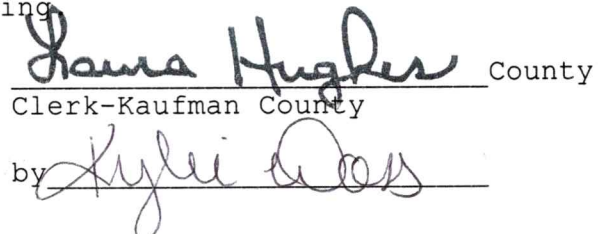 ing.
Laura Hughes County
Clerk-Kaufman County
by Kylie